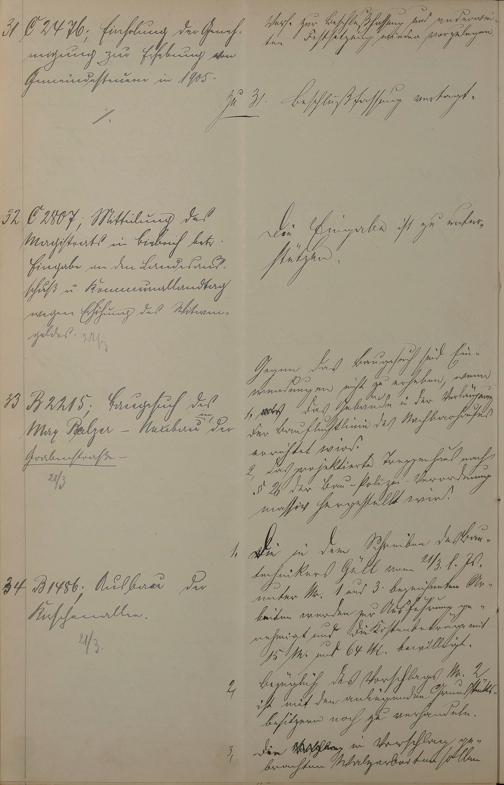 31 C 2476; Einholung der Geneh-
migung zur Erhebung von
Gemeindesteuern in 1905.
zur Beschlußfassung und
werden vorzulegen
zu 31. Beschlußfassung vertagt.
32 C 2807; Mittheilung des
Magistrats in Biebrich betr.
Eingabe an den Landesaus-
schuß u Kommunallandtag
wegen Erhöhung des
geldes. 22/3
Die Eingabe ist zu unter-
stützen.
33 B 2215; Baugesuch des
Max Balzer - Neubau der
Grabenstraße -
22/3
Gegen das Baugesuch sind Ein-
wendungen nicht zu erheben, wenn
1, das Gebäude in der Verlängerung
der Bauflucht des Nachbarhauses
errichtet wird.
2, das projektierte Treppenhaus nach
§ 26 der Bau-Polizei-Verordnung
massiv hergestellt wird.
34 B 1486; Ausbau der
21/3.
1. Die in dem Schreiben des Bau-
technikers vom 21/3. l. Js.
unter No. 1 und 3 bezeichneten Ar-
beiten werden zur Ausführung ge-
nehmigt und die Kostenbeträge mit
15 M. und 64 M. bewilligt.
2, bezüglich des Vorschlags No. 2
ist mit den anliegenden Grundstücks-
besitzern noch zu verhandeln.
3, die in Vorschlag ge-
brachten sollen